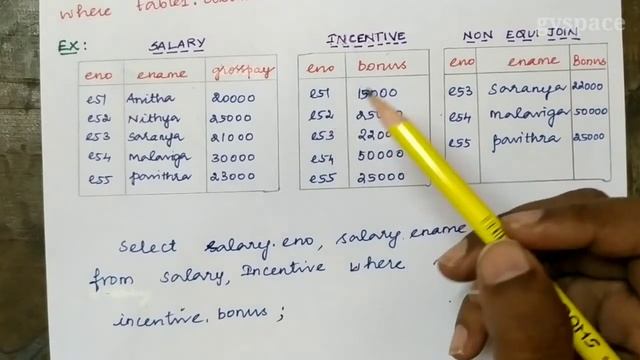 where table1.
gvspace
EX: SALARY INCENTIVE NON EQUI JOIN
eno ename grosspay eno bonus eno ename Bonus
e51 Anitha 20000 e51 15000 e53 Saranya 22000
e52 Nithya 25000 e52 e54 malaviga 50000
e53 Saranya 21000 e53 e55 Pavithra 25000
e54 malaviga 30000 e54 50000
e55 Pavithra 23000 e55 25000
Select salary.eno, salary.ename
from salary, Incentive where
incentive.bonus;